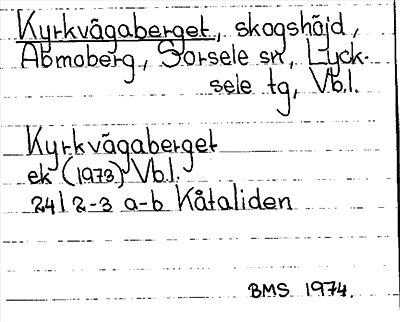 Kyrkvägaberget, skogshöjd,
Abmoberg, Sorsele sn, Lyck-
sele tg, Vb.l.
Kyrkvägaberget
ek (1973) Vb.l.
24I 2-3 a-b Kåtaliden
BMS 1974.